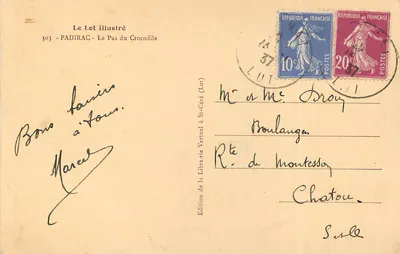 Le Lot illustré
503 - PADIRAC - Le Pas du Crocodile
Bons baisers
à tous.
Marcel
Edition de la Librairie Vertuel à St-Céré (Lot)
REPUBLIQUE FRANÇAISE
10c
REPUBLIQUE FRANÇAISE
20c
37
LOT
37
Mr et Me Drouy
Boulanger
Rte de Montesson
Chatou.
S et O